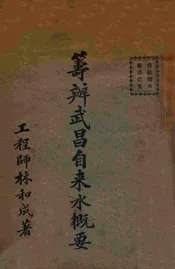 籌辦武昌自来水概要
工程師林和成著